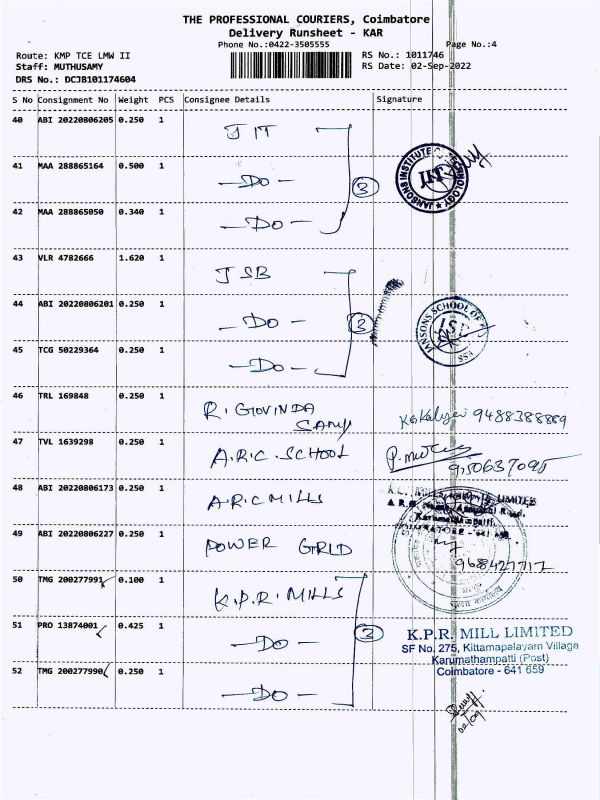 THE PROFESSIONAL COURIERS, Coimbatore
Delivery Runsheet - KAR
Phone No.:0422-3505555 Page No.:4
Route: KMP TCE LMW II RS No.: 1011746
Staff: MUTHUSAMY RS Date: 02-Sep-2022
DRS No.: DCJB101174604
S No Consignment No Weight PCS Consignee Details Signature
40 ABI 20220806205 0.250 1 JIT
41 MAA 288865164 0.500 1 -DO- 3
JANSONS INSTITUTE OF TECHNOLOGY JIT
42 MAA 288865050 0.340 1 -DO-
43 VLR 4782666 1.620 1 JSB
44 ABI 20220806201 0.250 1 -DO- 3
JANSONS SCHOOL OF JSB
45 TCG 50229364 0.250 1 -DO-
46 TRL 169848 0.250 1 R. GOVINDA SAMY 9488388869
47 TVL 1639298 0.250 1 A.R.C. SCHOOL
48 ABI 20220806173 0.250 1 A.R.C MILLS
49 ABI 20220806227 0.250 1 POWER GRID
50 TMG 200277991 0.100 1 K.P.R. MILLS
51 PRO 13874001 0.425 1 -DO- 3
K.P.R. MILL LIMITED
SF No. 275, Kittampalayam Village
Karumathampatti (Post)
Coimbatore - 641 659
52 TMG 200277990 0.250 1 -DO-
02/09